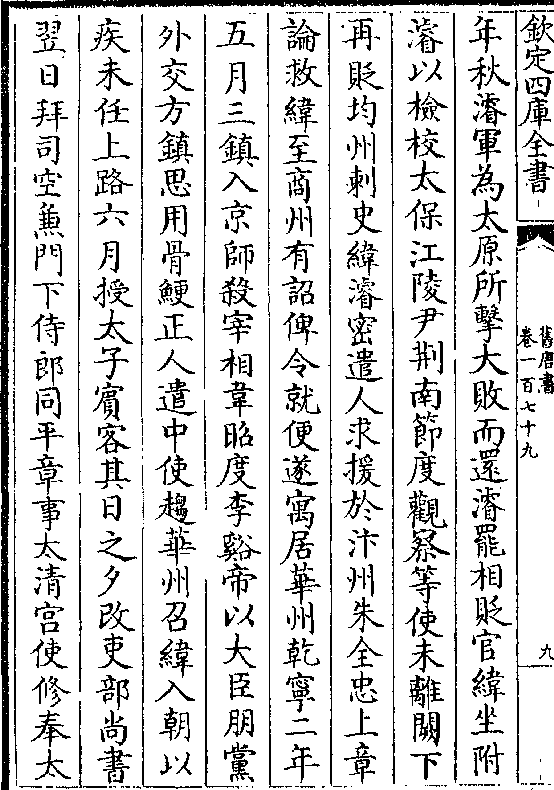 欽定四庫全書
舊唐書
卷一百七十九
九
年秋濬軍為太原所擊大敗而還濬罷相貶官緯坐附
濬以檢校太保江陵尹荆南節度觀察等使未離闕下
再貶均州刺史緯濬密遣人求援於汴州朱全忠上章
論救緯至商州有詔俾令就便遂寓居華州乾寧二年
五月三鎮入京師殺宰相韋昭度李谿帝以大臣朋黨
外交方鎮思用骨鯁正人遣中使趨華州召緯入朝以
疾未任上路六月授太子賓客其日之夕改吏部尚書
翌日拜司空兼門下侍郎同平章事太清宫使修奉太